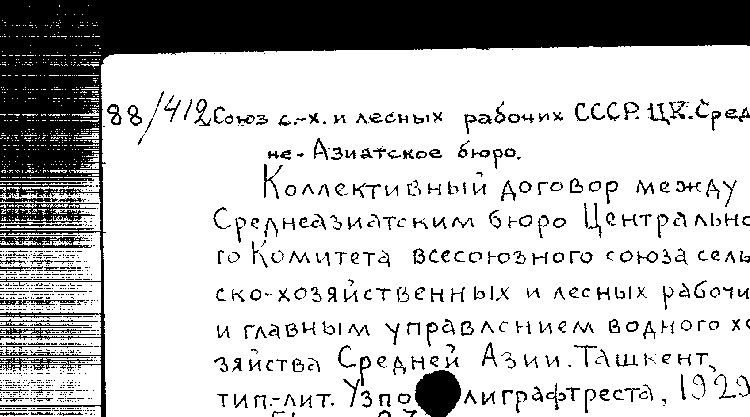 88/412 Союз с.-х. и лесных рабочих СССР. ЦК. Сред
не-Азиатское бюро.
Коллективный договор между
Среднеазиатским бюро Центрально
го Комитета всесоюзного союза сель
ско-хозяйственных и лесных рабочи
и главным управлением водного хо
зяйства Средней Азии. Ташкент,
тип.-лит. Узпо лиграфтреста, 1929